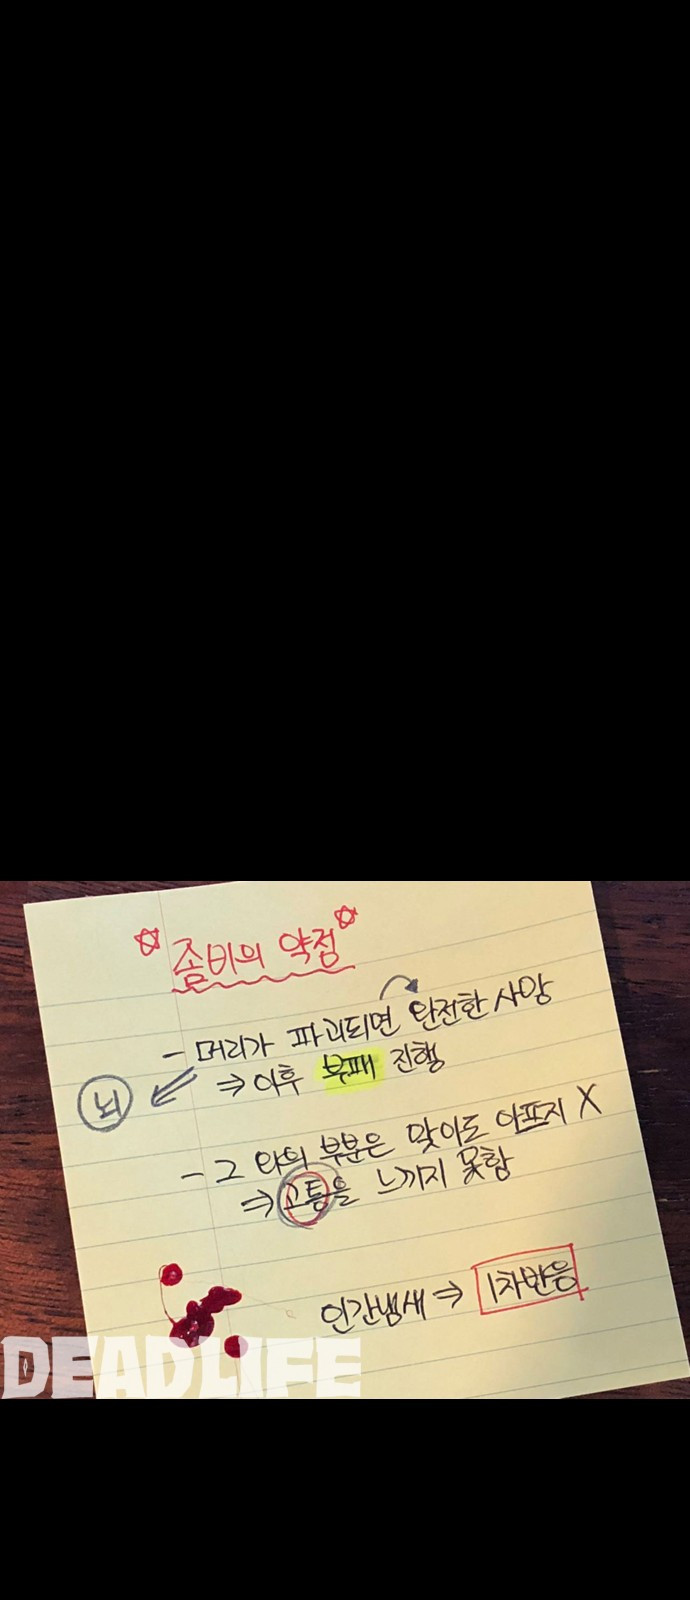 좀비의 약점
- 머리가 파괴되면 완전한 사망
뇌
⇒ 이후 부패 진행
- 그 외의 부분은 맞아도 아프지 X
⇒ 고통을 느끼지 못함
인간냄새 ⇒ 1차반응
DEADLIFE